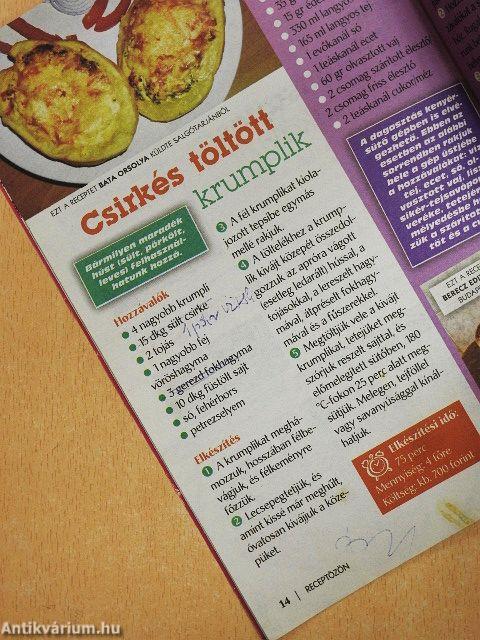 EZT A RECEPTET BATA ORSOLYA KÜLDTE SALGÓTARJÁNBÓL
Csirkés töltött
krumplik
Bármilyen maradék
húst (sült, pörkölt,
leves) felhasznál-
hatunk hozzá.
Hozzávalók
4 nagyobb krumpli
15 dkg sült csirke
2 tojás
1 nagyobb fej
vöröshagyma
3 gerezd fokhagyma
10 dkg füstölt sajt
só, fehérbors
petrezselyem
Elkészítés
1 A krumplikat meghá-
mozzuk, hosszában félbe-
vágjuk, és félkeményre
főzzük.
2 Lecsepegtetjük, és
amint kissé már meghűlt,
óvatosan kivájjuk a köze-
püket.
3 A fél krumplikat kiola-
jozott tepsibe egymás
mellé rakjuk.
4 A töltelékhez a krump-
lik kivájt közepét összedol-
gozzuk az apróra vágott
(esetleg ledarált) hússal, a
tojásokkal, a lereszelt hagy-
mával, átpréselt fokhagy-
mával és a fűszerekkel.
5 Megtöltjük vele a kivájt
krumplikat, tetejüket meg-
szórjuk reszelt sajttal, és
előmelegített sütőben, 180
°C-fokon 25 perc alatt meg-
sütjük. Melegen, tejföllel
vagy savanyúsággal kínál-
hatjuk.
Elkészítési idő:
75 perc
Mennyiség: 4 főre
Költség: kb. 700 forint
14 | RECEPTÖZÖN
15 gr
330 ml langyos
165 ml langyos tej
1 evőkanál só
1 teáskanál ecet
60 gr olvasztott vaj
2 csomag szárított élesztő
2 csomag friss élesztő
2 teáskanál cukor/méz
A dagasztás kenyér-
sütő gépben is elvé-
gezhető. Ebben az
esetben az alábbi
sorrendben rakjuk
bele a gép üstjébe
a hozzávalókat:
tej, ecet, só,
vasz­tott vaj,
EZT A RECE
BERECZ ED
BUDA
Antikvárium.hu